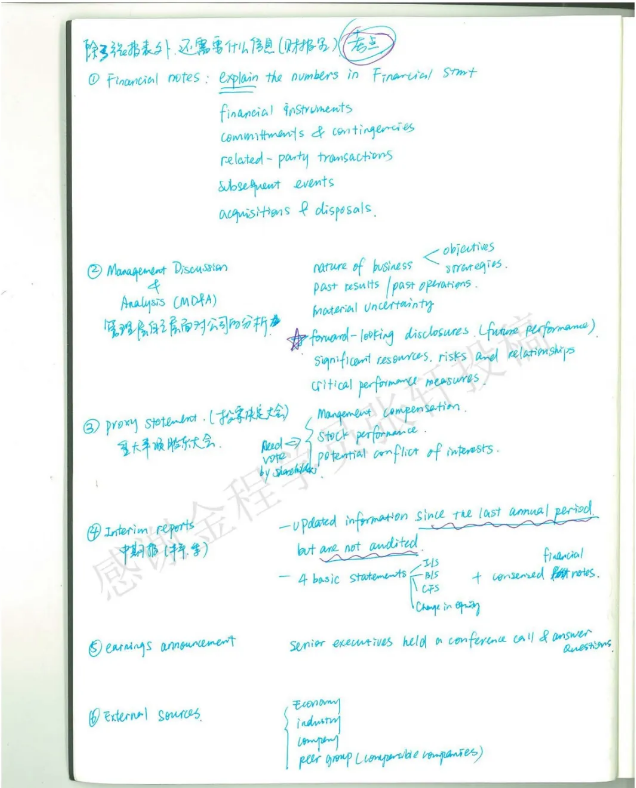 除了报表外,还需要什么信息(财报等) 考点
① Financial notes: explain the numbers in Financial Stmt
financial instruments
committments & contingencies
related-party transactions
subsequent events
acquisitions & disposals.
② Management Discussion
&
Analysis (MD&A)
管理层自主层面对公司的分析
nature of business objectives
strategies.
past results / past operations.
material uncertainty
☆ forward-looking disclosures (future performance)
significant resources, risks and relationships
critical performance measures.
③ proxy statement. (投票决定大会)
重大事项股东大会.
Need
vote
by shareholders
Management compensation.
Stock performance.
potential conflict of interests.
④ Interim reports
中期报 (半年)
— updated information since the last annual period
but are not audited.
— 4 basic statements I/S
B/S
CFS
Change in equity
+ condensed financial notes.
⑤ earnings announcement
senior executives held a conference call & answer
questions
⑥ External sources.
Economy
industry
company
peer group (comparable companies)
感谢金程学员张轩投稿